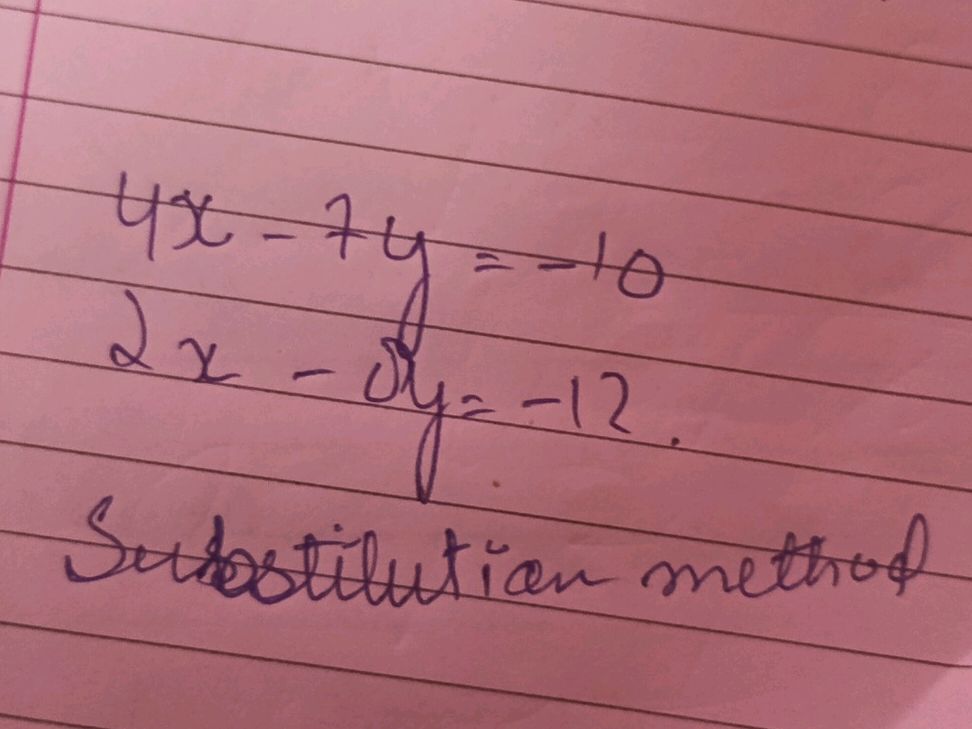 4x - 7y = -10
2x - 5y = -12.
Substitution method